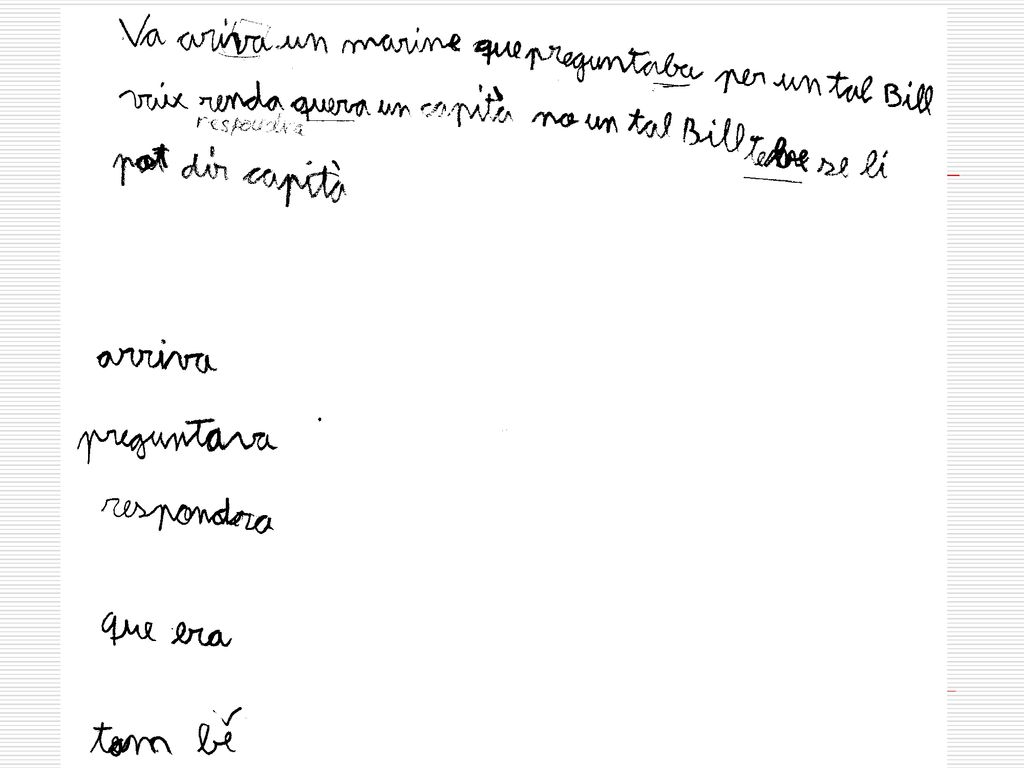 Va ariva un marine que preguntaba per un tal Bill
vaix renda quera un capità no un tal Bill se li
respondra
pot dir capità
arriva
preguntava
respondra
que era
tam bé